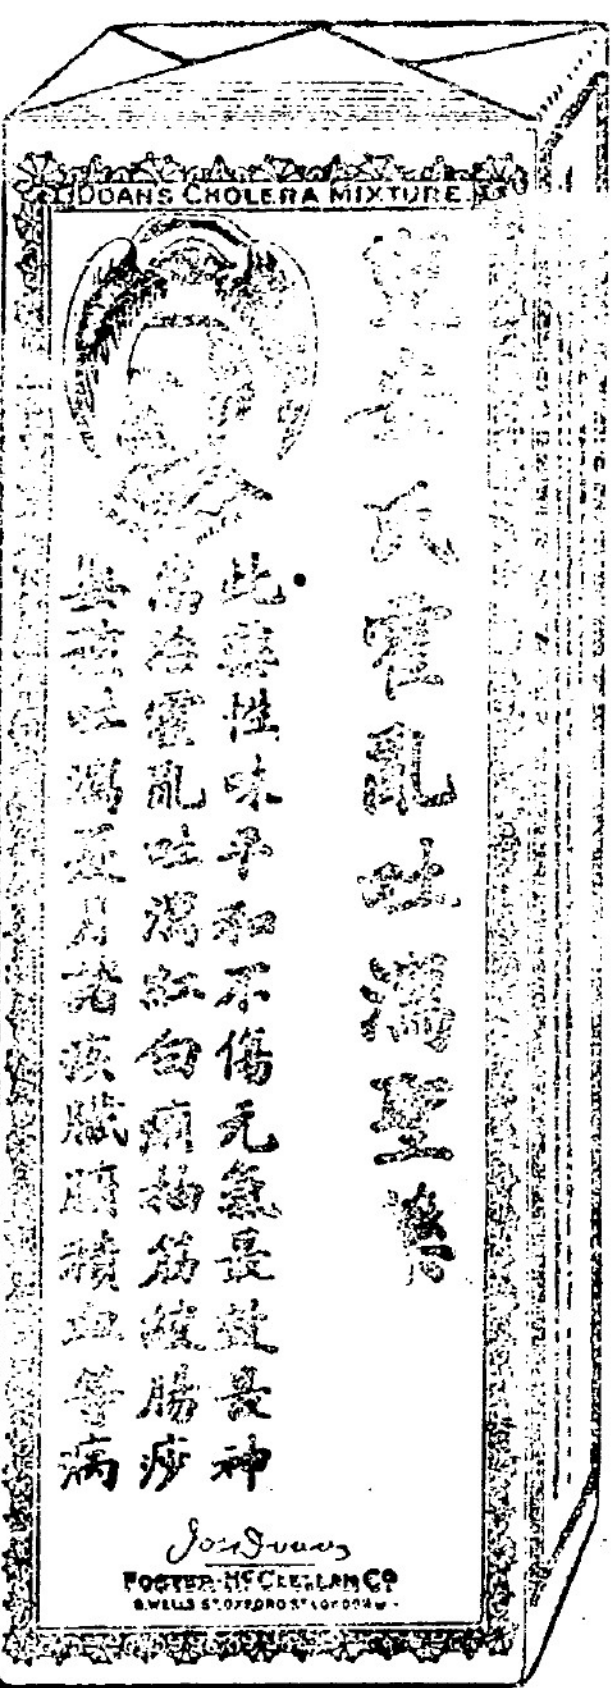 DOANS CHOLERA MIXTURE
兜安氏霍亂吐瀉聖
此藥性味平和不傷元氣最效最神
治霍亂吐瀉紅白痢抽筋絞腸痧
吐瀉月諸痰臟積血等病
FOSTER-McCLELLAN Co
8. WELLS ST. OXFORD ST LONDON W.